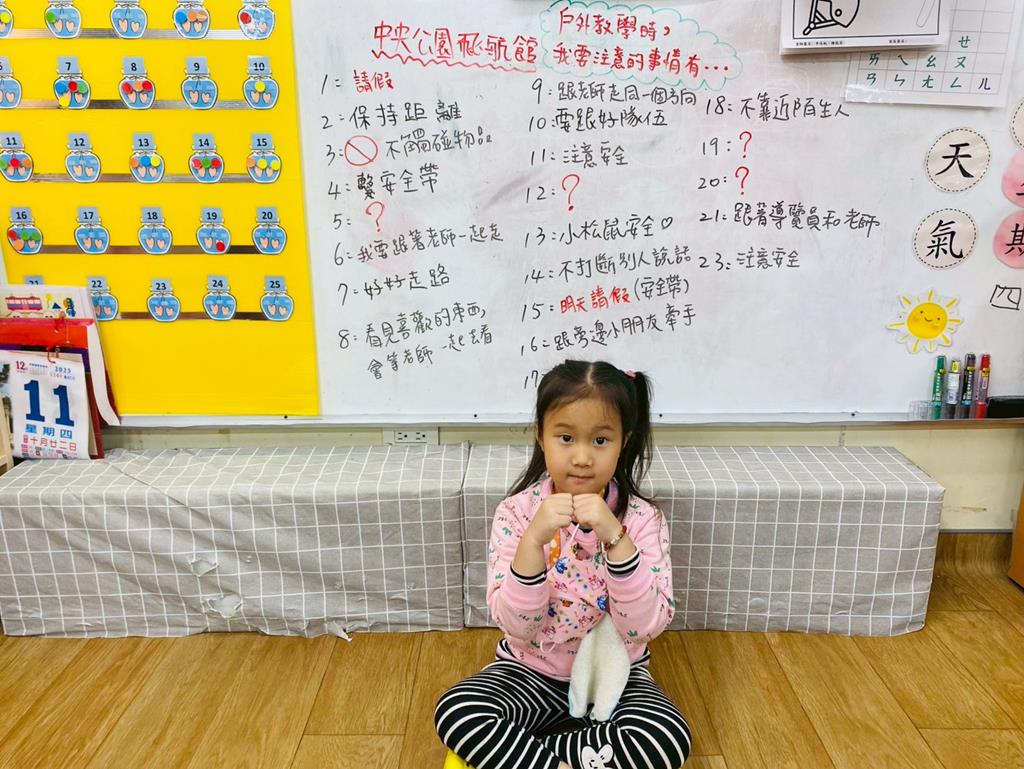 央央公園飛航館
戶外教學時，
我要注意的事情有...
1: 請假
2: 保持距離
3: 不觸碰物品
4: 繫安全帶
5: ?
6: 我要跟著老師一起走
7: 好好走路
8: 看見喜歡的東西，
會等老師一起去看
9: 跟老師走同一個方向
10: 要跟好隊伍
11: 注意安全
12: ?
13: 小松鼠安全♡
14: 不打斷別人說話
15: 明天請假(安全帶)
16: 跟旁邊小朋友牽手
17
18: 不靠近陌生人
19: ?
20: ?
21: 跟著導覽員和老師
23: 注意安全
6 7 8 9 10
11 12 13 14 15
16 17 18 19 20
21 22 23 24 25
12
2025
11
星期四
十月廿二日
ㄝ
ㄞ ㄟ ㄠ ㄡ
ㄢ ㄣ ㄤ ㄥ ㄦ
天
氣
期
四